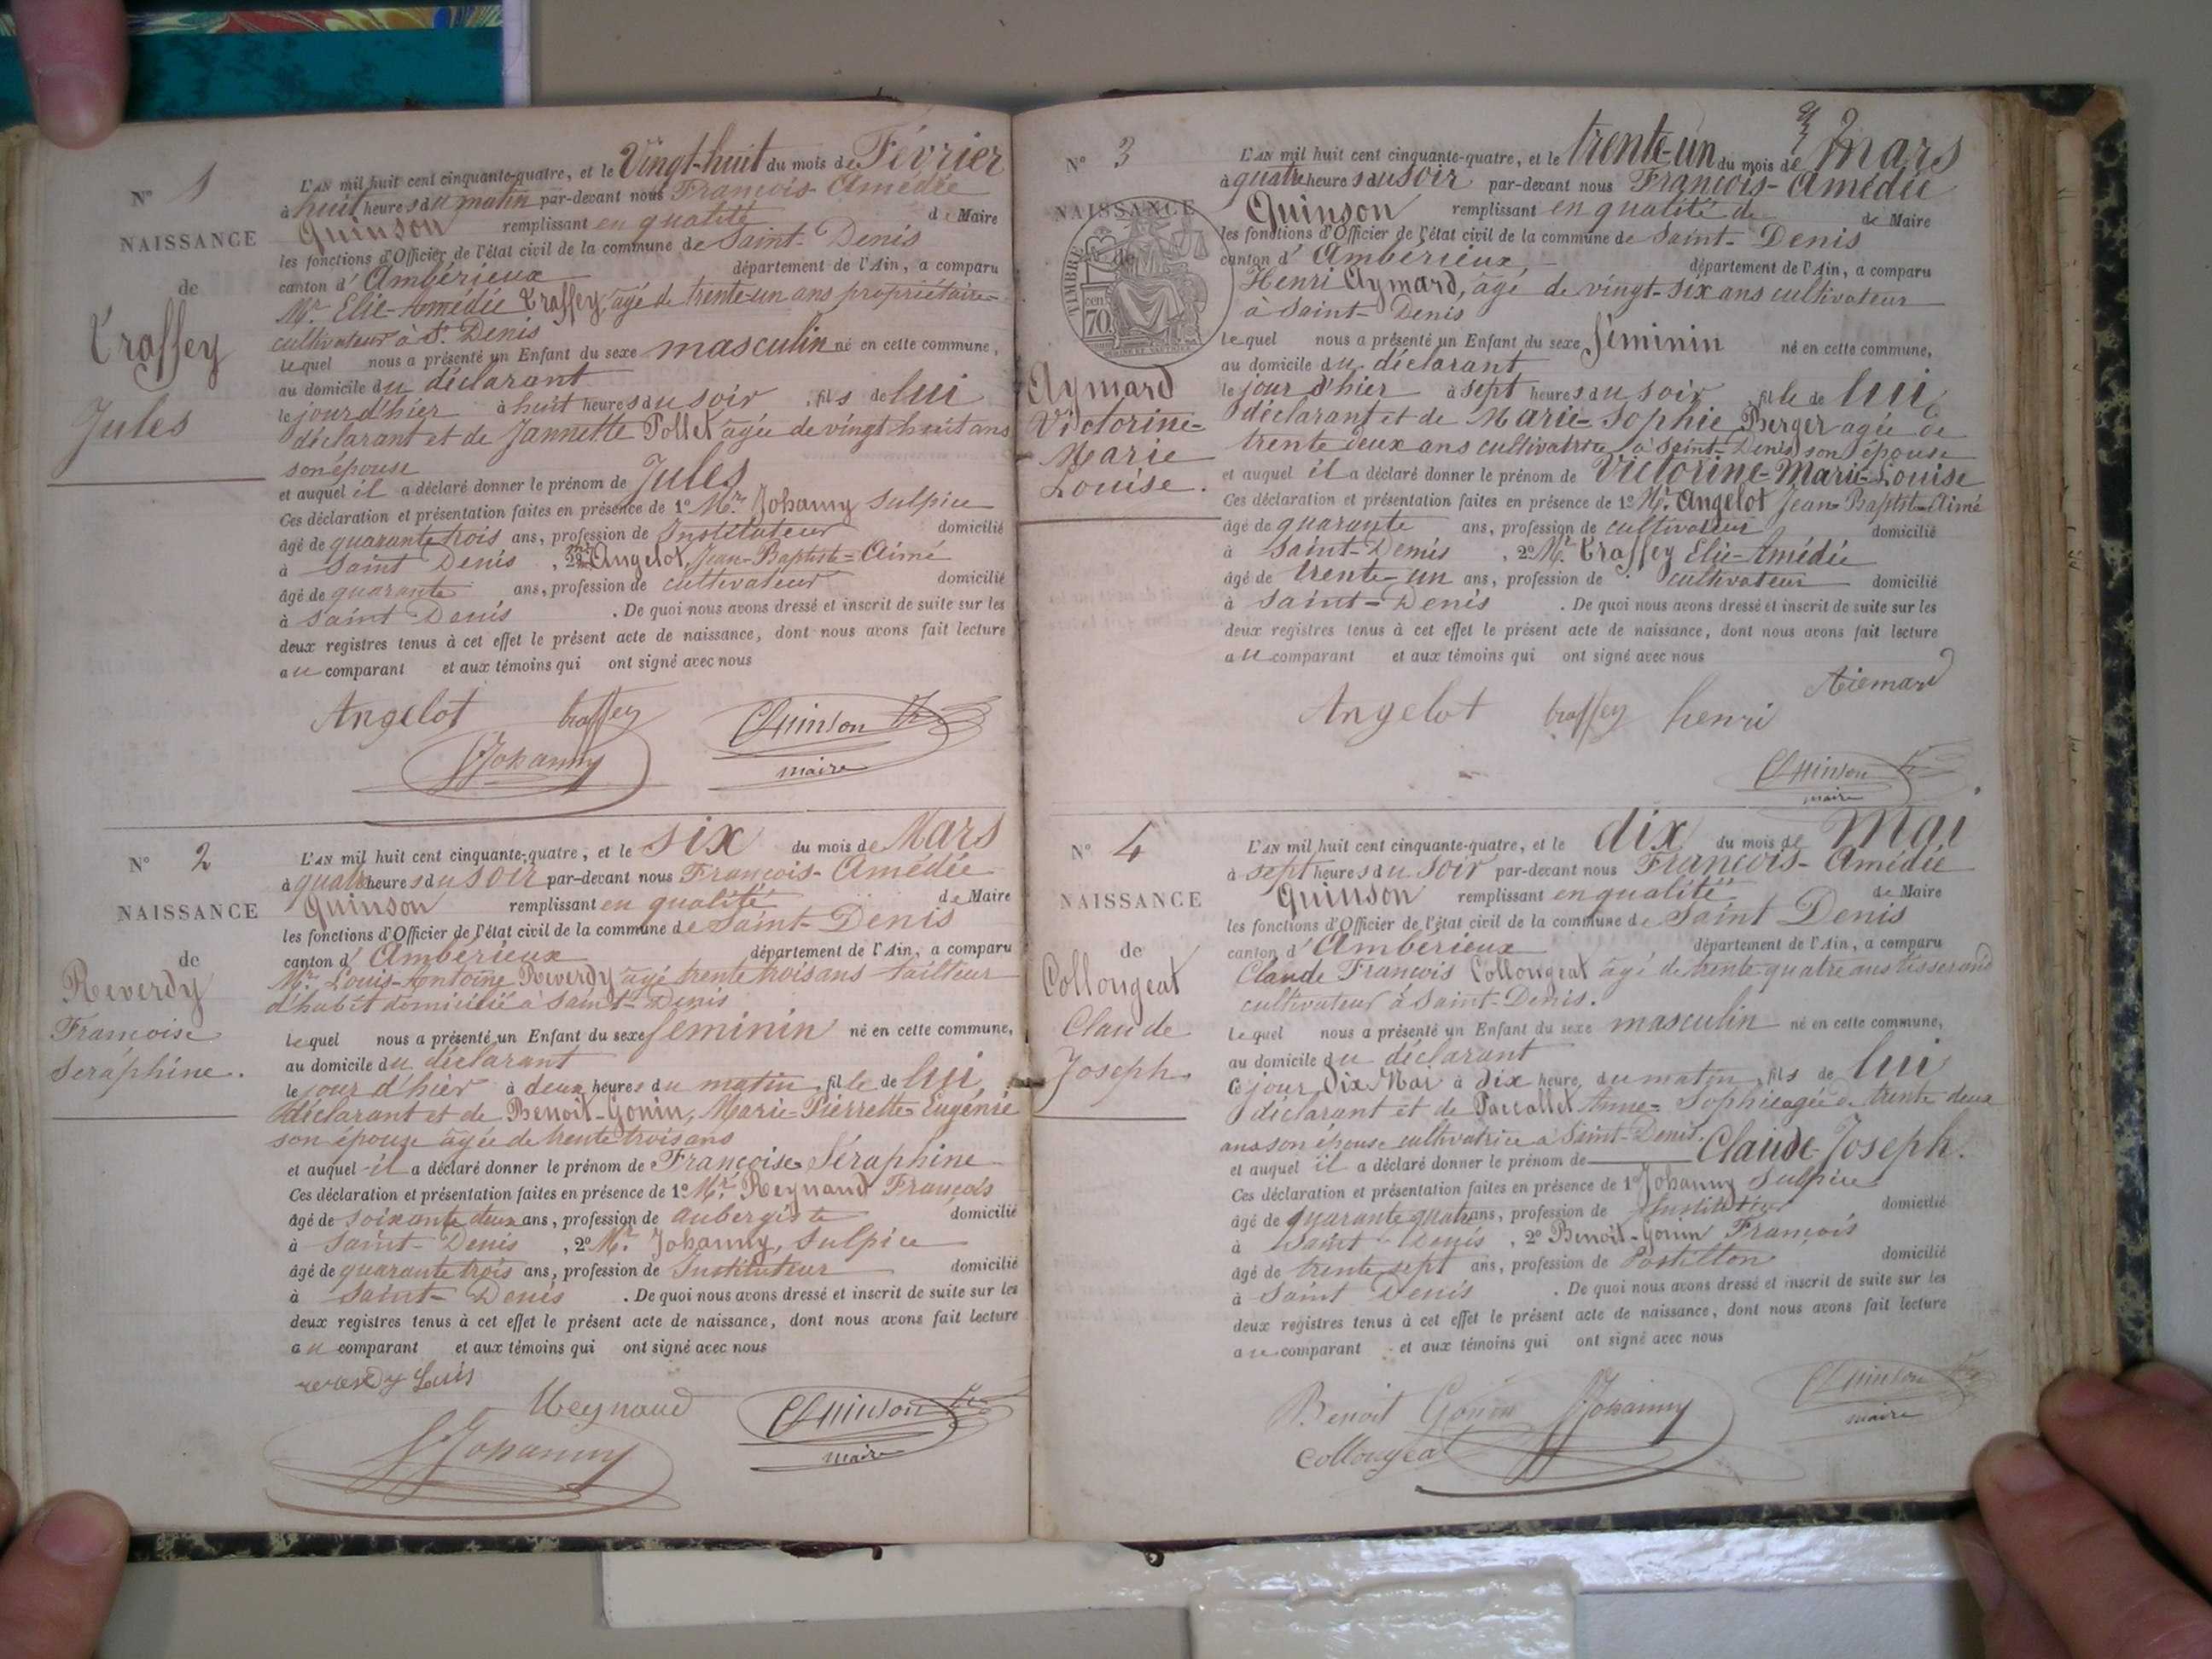 N° 1
NAISSANCE
de
Traffey
Jules
L'AN mil huit cent cinquante-quatre, et le Vingt-huit du mois de Février
à huit heures du matin par-devant nous François-Amédée
Quinson remplissant en qualité de Maire
les fonctions d'Officier de l'état civil de la commune de Saint-Denis
canton d'Ambérieux département de l'Ain, a comparu
Mr. Elie-Amédée Traffey, agé de trente-un ans propriétaire-
cultivateur à St. Denis
lequel nous a présenté un Enfant du sexe masculin né en cette commune,
au domicile du déclarant
le jour d'hier à huit heures du soir, fils de lui
déclarant et de Jannette Pollet agée de vingt huit ans
son épouse
et auquel il a déclaré donner le prénom de Jules
Ces déclaration et présentation faites en présence de 1° Mr. Johanny Sulpice
âgé de quarante trois ans, profession de Instituteur domicilié
à Saint Denis, 2° Mr Angelot, Jean-Baptiste-Aimé
âgé de quarante ans, profession de cultivateur domicilié
à Saint Denis. De quoi nous avons dressé et inscrit de suite sur les
deux registres tenus à cet effet le présent acte de naissance, dont nous avons fait lecture
au comparant et aux témoins qui ont signé avec nous
Angelot traffey Quinson
Johanny maire
N° 2
NAISSANCE
de
Reverdy
Françoise
Séraphine.
L'AN mil huit cent cinquante-quatre, et le six du mois de Mars
à quatre heures du soir par-devant nous François-Amédée
Quinson remplissant en qualité de Maire
les fonctions d'Officier de l'état civil de la commune de Saint-Denis
canton d'Ambérieux département de l'Ain, a comparu
Mr. Louis-Antoine Reverdy agé trente trois ans tailleur
d'habit domicilié à Saint-Denis
lequel nous a présenté un Enfant du sexe feminin né en cette commune,
au domicile du déclarant
le jour d'hier à deux heures du matin, fille de lui,
déclarant et de Benoit-Gonin, Marie-Pierrette-Eugénie
son épouse agée de trente trois ans
et auquel il a déclaré donner le prénom de Françoise Séraphine
Ces déclaration et présentation faites en présence de 1° Mr. Reynaud François
âgé de soixante deux ans, profession de aubergiste domicilié
à Saint-Denis, 2° Mr. Johanny, Sulpice
âgé de quarante trois ans, profession de Instituteur domicilié
à Saint-Denis. De quoi nous avons dressé et inscrit de suite sur les
deux registres tenus à cet effet le présent acte de naissance, dont nous avons fait lecture
au comparant et aux témoins qui ont signé avec nous
Reynaud Quinson
Johanny maire
2
N° 3
NAISSANCE
de
TIMBRE
70
Aymard
Victorine-
Marie
Louise.
L'AN mil huit cent cinquante-quatre, et le trente-un du mois de mars
à quatre heures du soir par-devant nous François-Amédée
Quinson remplissant en qualité de de Maire
les fonctions d'Officier de l'état civil de la commune de Saint-Denis
canton d'Ambérieux, département de l'Ain, a comparu
Henri Aymard, agé de vingt-six ans cultivateur
à Saint-Denis
lequel nous a présenté un Enfant du sexe féminin né en cette commune,
au domicile du déclarant
le jour d'hier à sept heures du soir, fille de lui,
déclarant et de Marie-Sophie Berger agée de
trente deux ans cultivatrice à Saint-Denis son épouse
et auquel il a déclaré donner le prénom de Victorine-Marie-Louise
Ces déclaration et présentation faites en présence de 1° Mr. Angelot Jean-Baptiste-Aimé
âgé de quarante ans, profession de cultivateur domicilié
à Saint-Denis, 2° Mr. Traffey Elie-Amédée
âgé de trente-un ans, profession de cultivateur domicilié
à Saint-Denis. De quoi nous avons dressé et inscrit de suite sur les
deux registres tenus à cet effet le présent acte de naissance, dont nous avons fait lecture
au comparant et aux témoins qui ont signé avec nous
Angelot traffey henri Aiemard
Quinson
maire
N° 4
NAISSANCE
de
Collongeat
Claude
Joseph.
L'AN mil huit cent cinquante-quatre, et le dix du mois de Mai
à sept heures du soir par-devant nous François-Amédée
Quinson remplissant en qualité de Maire
les fonctions d'Officier de l'état civil de la commune de Saint Denis
canton d'Ambérieux département de l'Ain, a comparu
Claude François Collongeat agé de trente quatre ans tisserand
cultivateur à Saint-Denis.
lequel nous a présenté un Enfant du sexe masculin né en cette commune,
au domicile du déclarant
Ce jour, Dix Mai à dix heure du matin, fils de lui
déclarant et de Anne-Sophie agée de trente deux
ans son épouse cultivatrice à Saint-Denis.
et auquel il a déclaré donner le prénom de Claude-Joseph.
Ces déclaration et présentation faites en présence de 1° Johanny Sulpice
âgé de quarante quatre ans, profession de Instituteur domicilié
à Saint-Denis, 2° Benoit-Gonin François
âgé de trente sept ans, profession de Postillon domicilié
à Saint Denis. De quoi nous avons dressé et inscrit de suite sur les
deux registres tenus à cet effet le présent acte de naissance, dont nous avons fait lecture
au comparant et aux témoins qui ont signé avec nous
Benoit Gonin Johanny Quinson
Collongeat maire